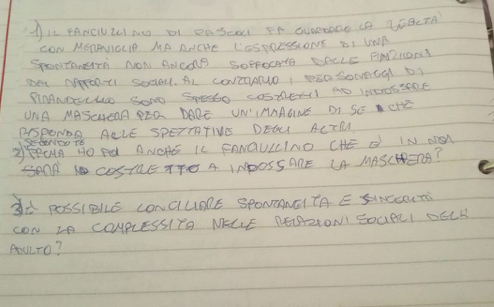 1) IL FANCIULLINO DI PASCOLI FA GUARDARE LA REALTÀ
CON MERAVIGLIA MA ANCHE L'ESPRESSIONE DI UNA
SPONTANEITÀ NON ANCORA SOFFOCATA DALLE FINZIONI
DEI RAPPORTI SOCIALI. AL CONTRARIO I PERSONAGGI DI
PIRANDELLO SONO SPESSO COSTRETTI AD INDOSSARE
UNA MASCHERA PER DARE UN'IMMAGINE DI SE CHE
RISPONDA ALLE SPETTATIVE DEGLI ALTRI
SECONDO TE
2) PRIMA O POI ANCHE IL FANCIULLINO CHE È IN NOI
SARÀ COSTRETTO A INDOSSARE LA MASCHERA?
3) È POSSIBILE CONCILIARE SPONTANEITÀ E SINCERITÀ
CON LA COMPLESSITÀ NELLE RELAZIONI SOCIALI DELL'
ADULTO?